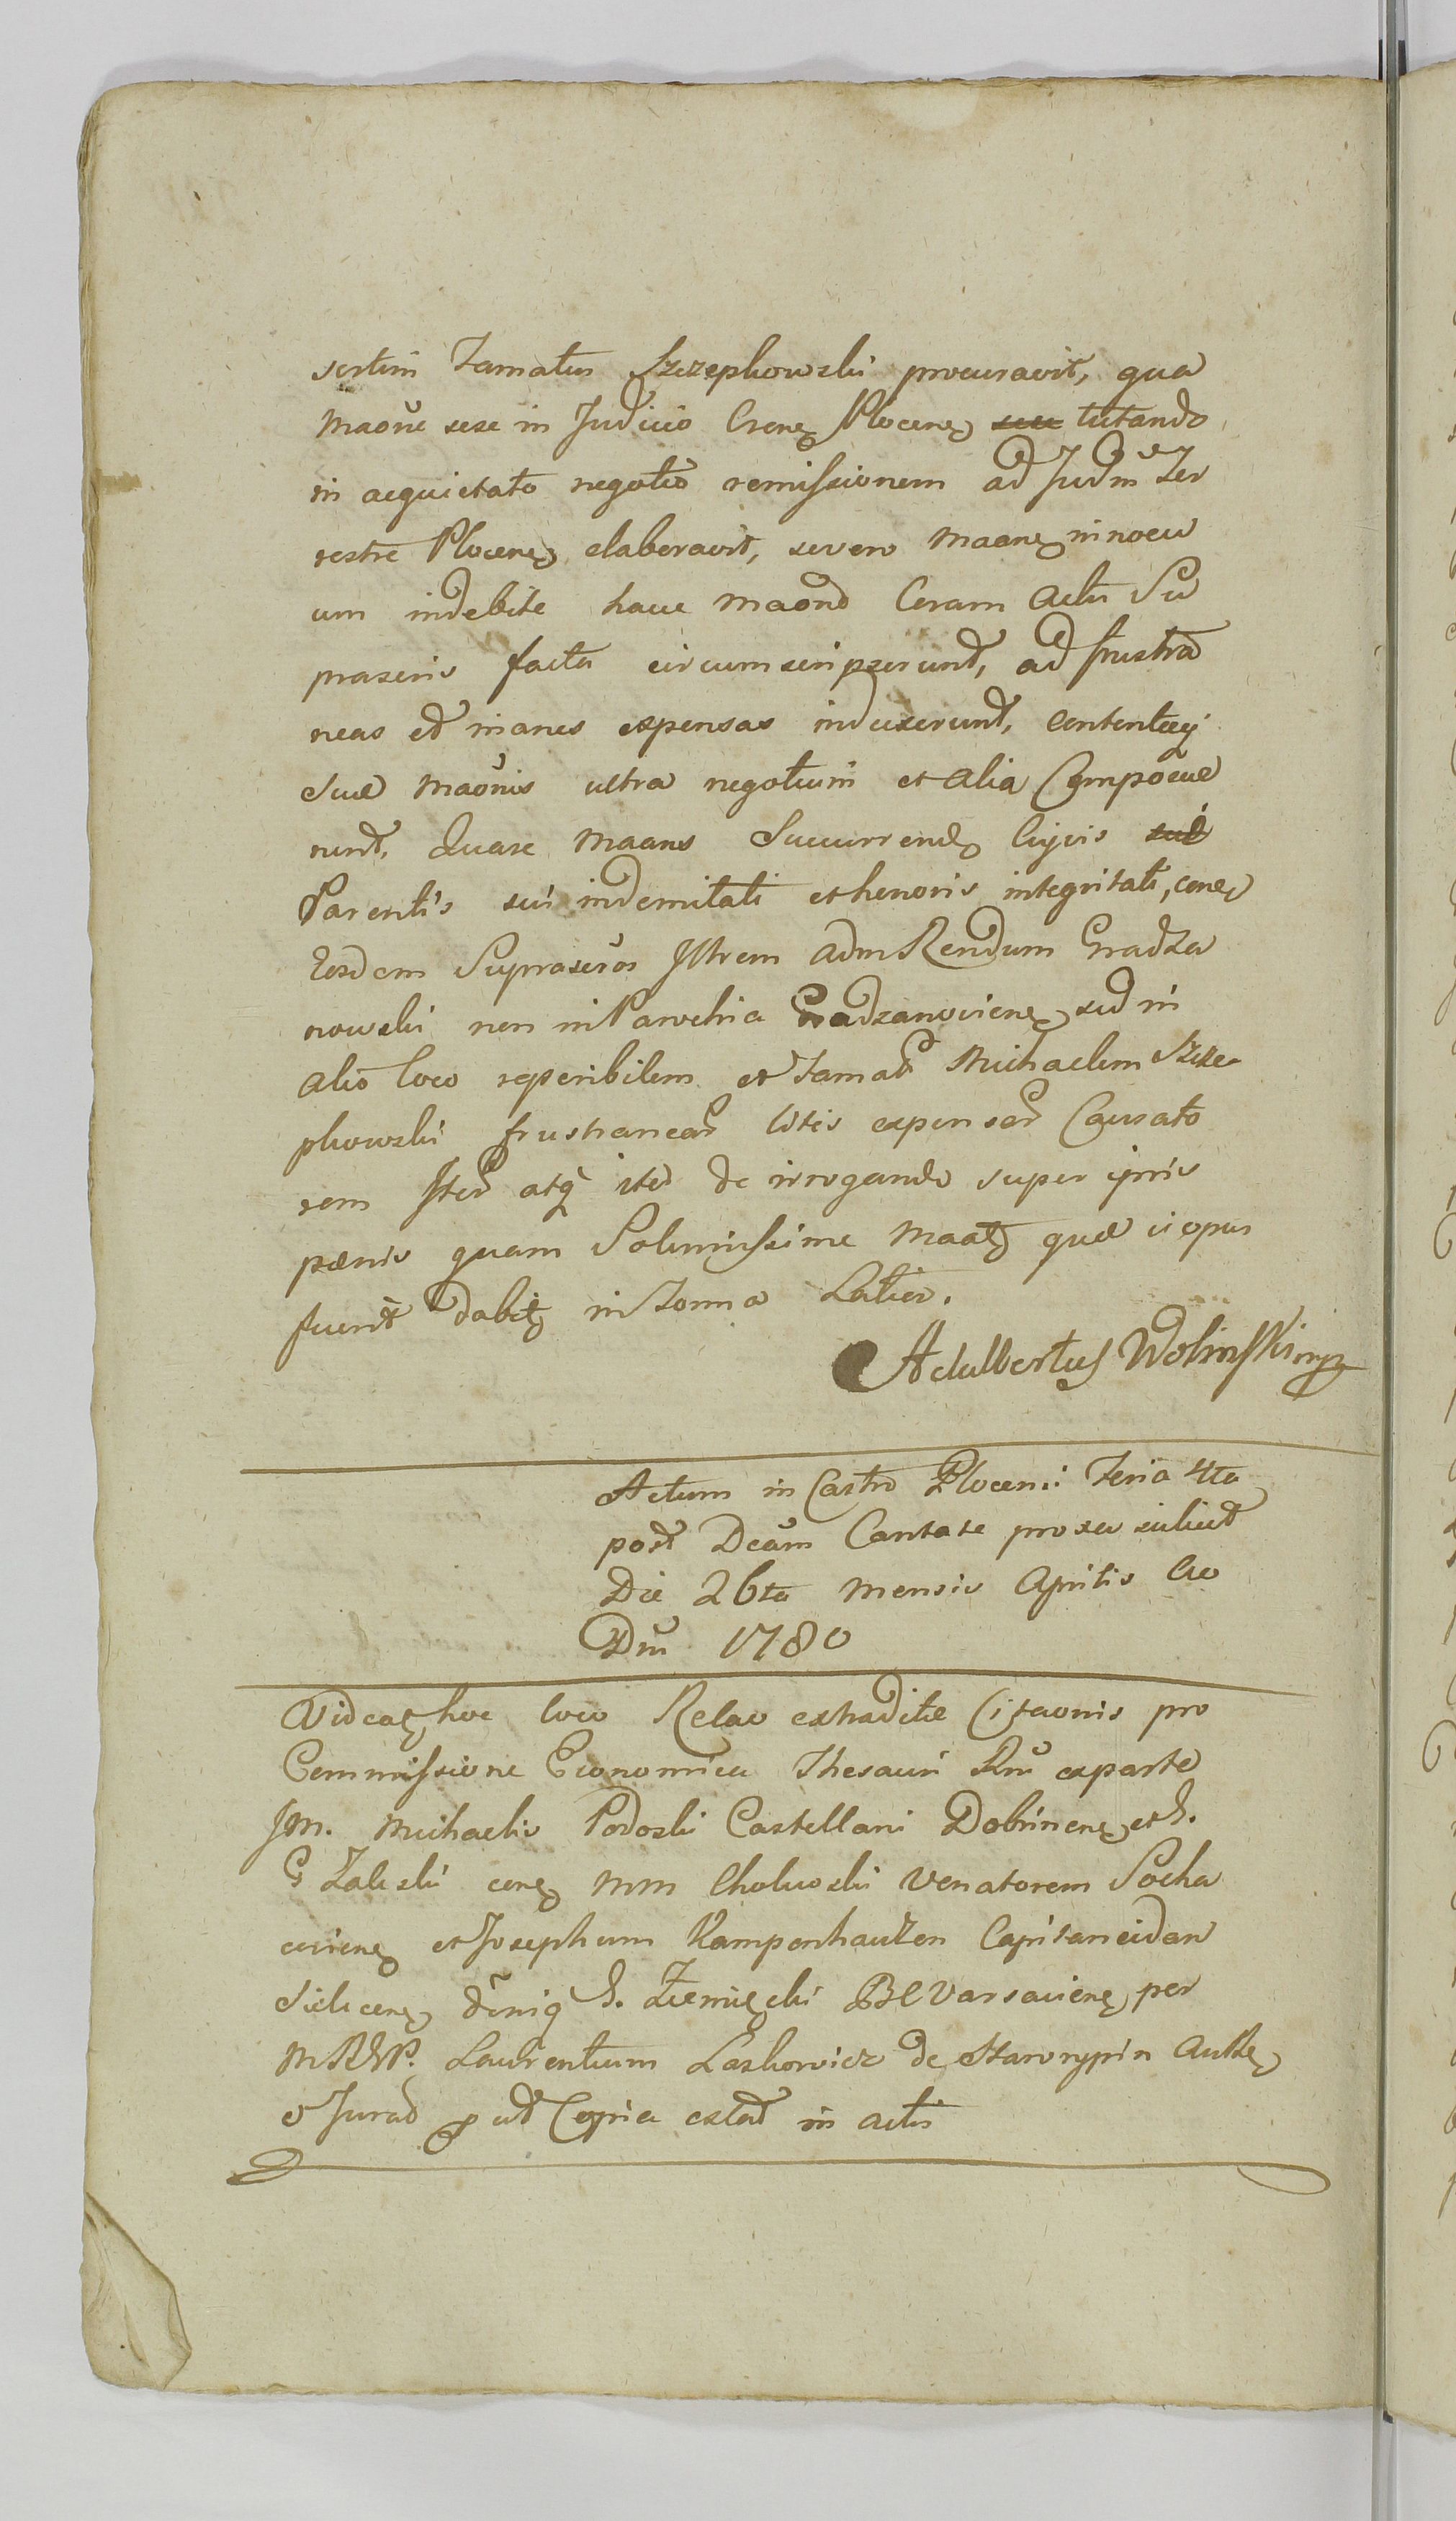 sertim Famatus Szczepkowski procuravit, qua
maõne sese in Judicio Crenẽ Plocenẽ tutando
in aequietato negotio remissionem ad Judm Ter
restre Plocenẽ elaboravit, se vero maanẽ innocu
um indebite hacce maond Coram Actis Su
praseris facta circumscripserunt, ad frustra
neas et inanes expensas induxerunt, Contentaq
suæ maõnis ultra negotium et alia Composue
runt, Quare maans Succurrendo hujus
Parentis sui indemnitati et honoris integritati, conẽ
Eosdem Supraseros Illrem Adm Rendum Gradza
nowski non in Parochia Gradzanoviene, sed in
alio loco reperibilem et Famat Michaelem Szcze
pkowski frustranear litis expensar Causato
rem Iter atq iter de irrogando super ipsis
pænis quam Solennissime maat quæ si opus
fuerit dabit in Forma Latior.
Adalbertus Wolinski mp
Actum in Castro Plocensi Feria 4ta
post Dcam Cantate proxa sciliut
Die 26ta mensis Aprilis Ao
Dni 1780
Videat hoc loco Relao extraditæ Citaonis pro
Commissione Economica Thesauri Rni ex parte
JM. Michaelis Podoski Castellani Dobrinenẽ et G.
G Zaleski conẽ MM Choluoski Venatorem Socha
coviene et Josephum Kampenhauzen Capitaneidan
Sielicene, G. Ziemięcki BC Varsaviene, per
Laurentium Laskowicz de Starorypin Authe
et Jurad put Copia extat in actis